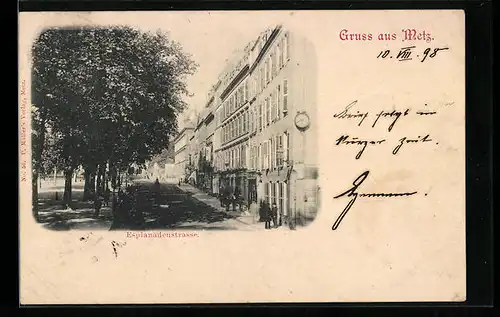 Gruss aus Metz.
10. VIII. 98
Brief folgt in
kurzer Zeit.
No: 36. P. Müller's Verlag, Metz.
Esplanadenstrasse.